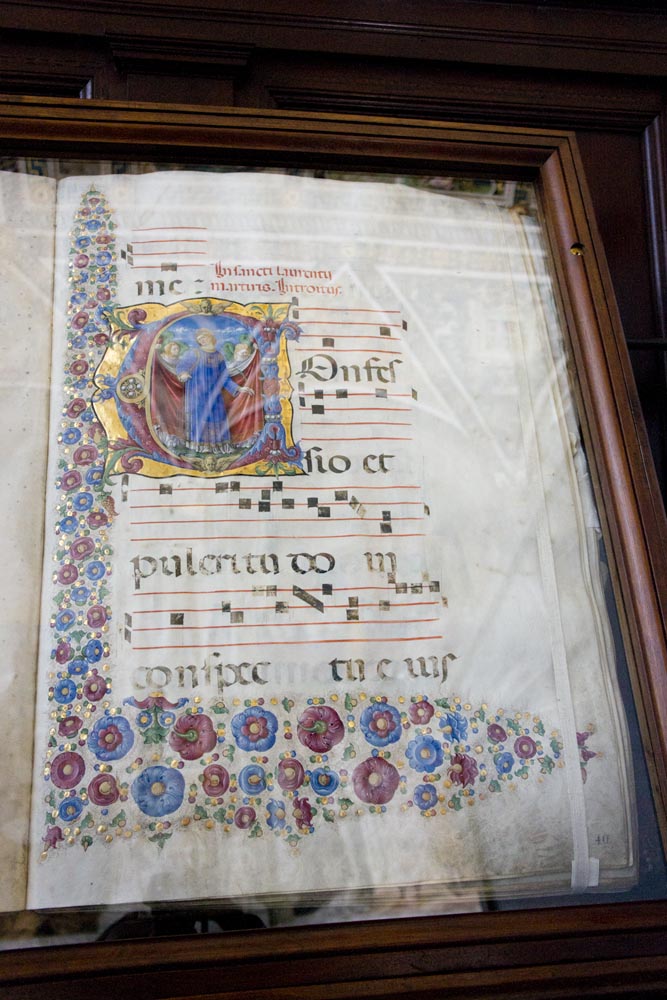 me :
In sancti laurentij
martiris. Introitus.
COnfes
sio et
pulcritudo in
conspectu eius
40